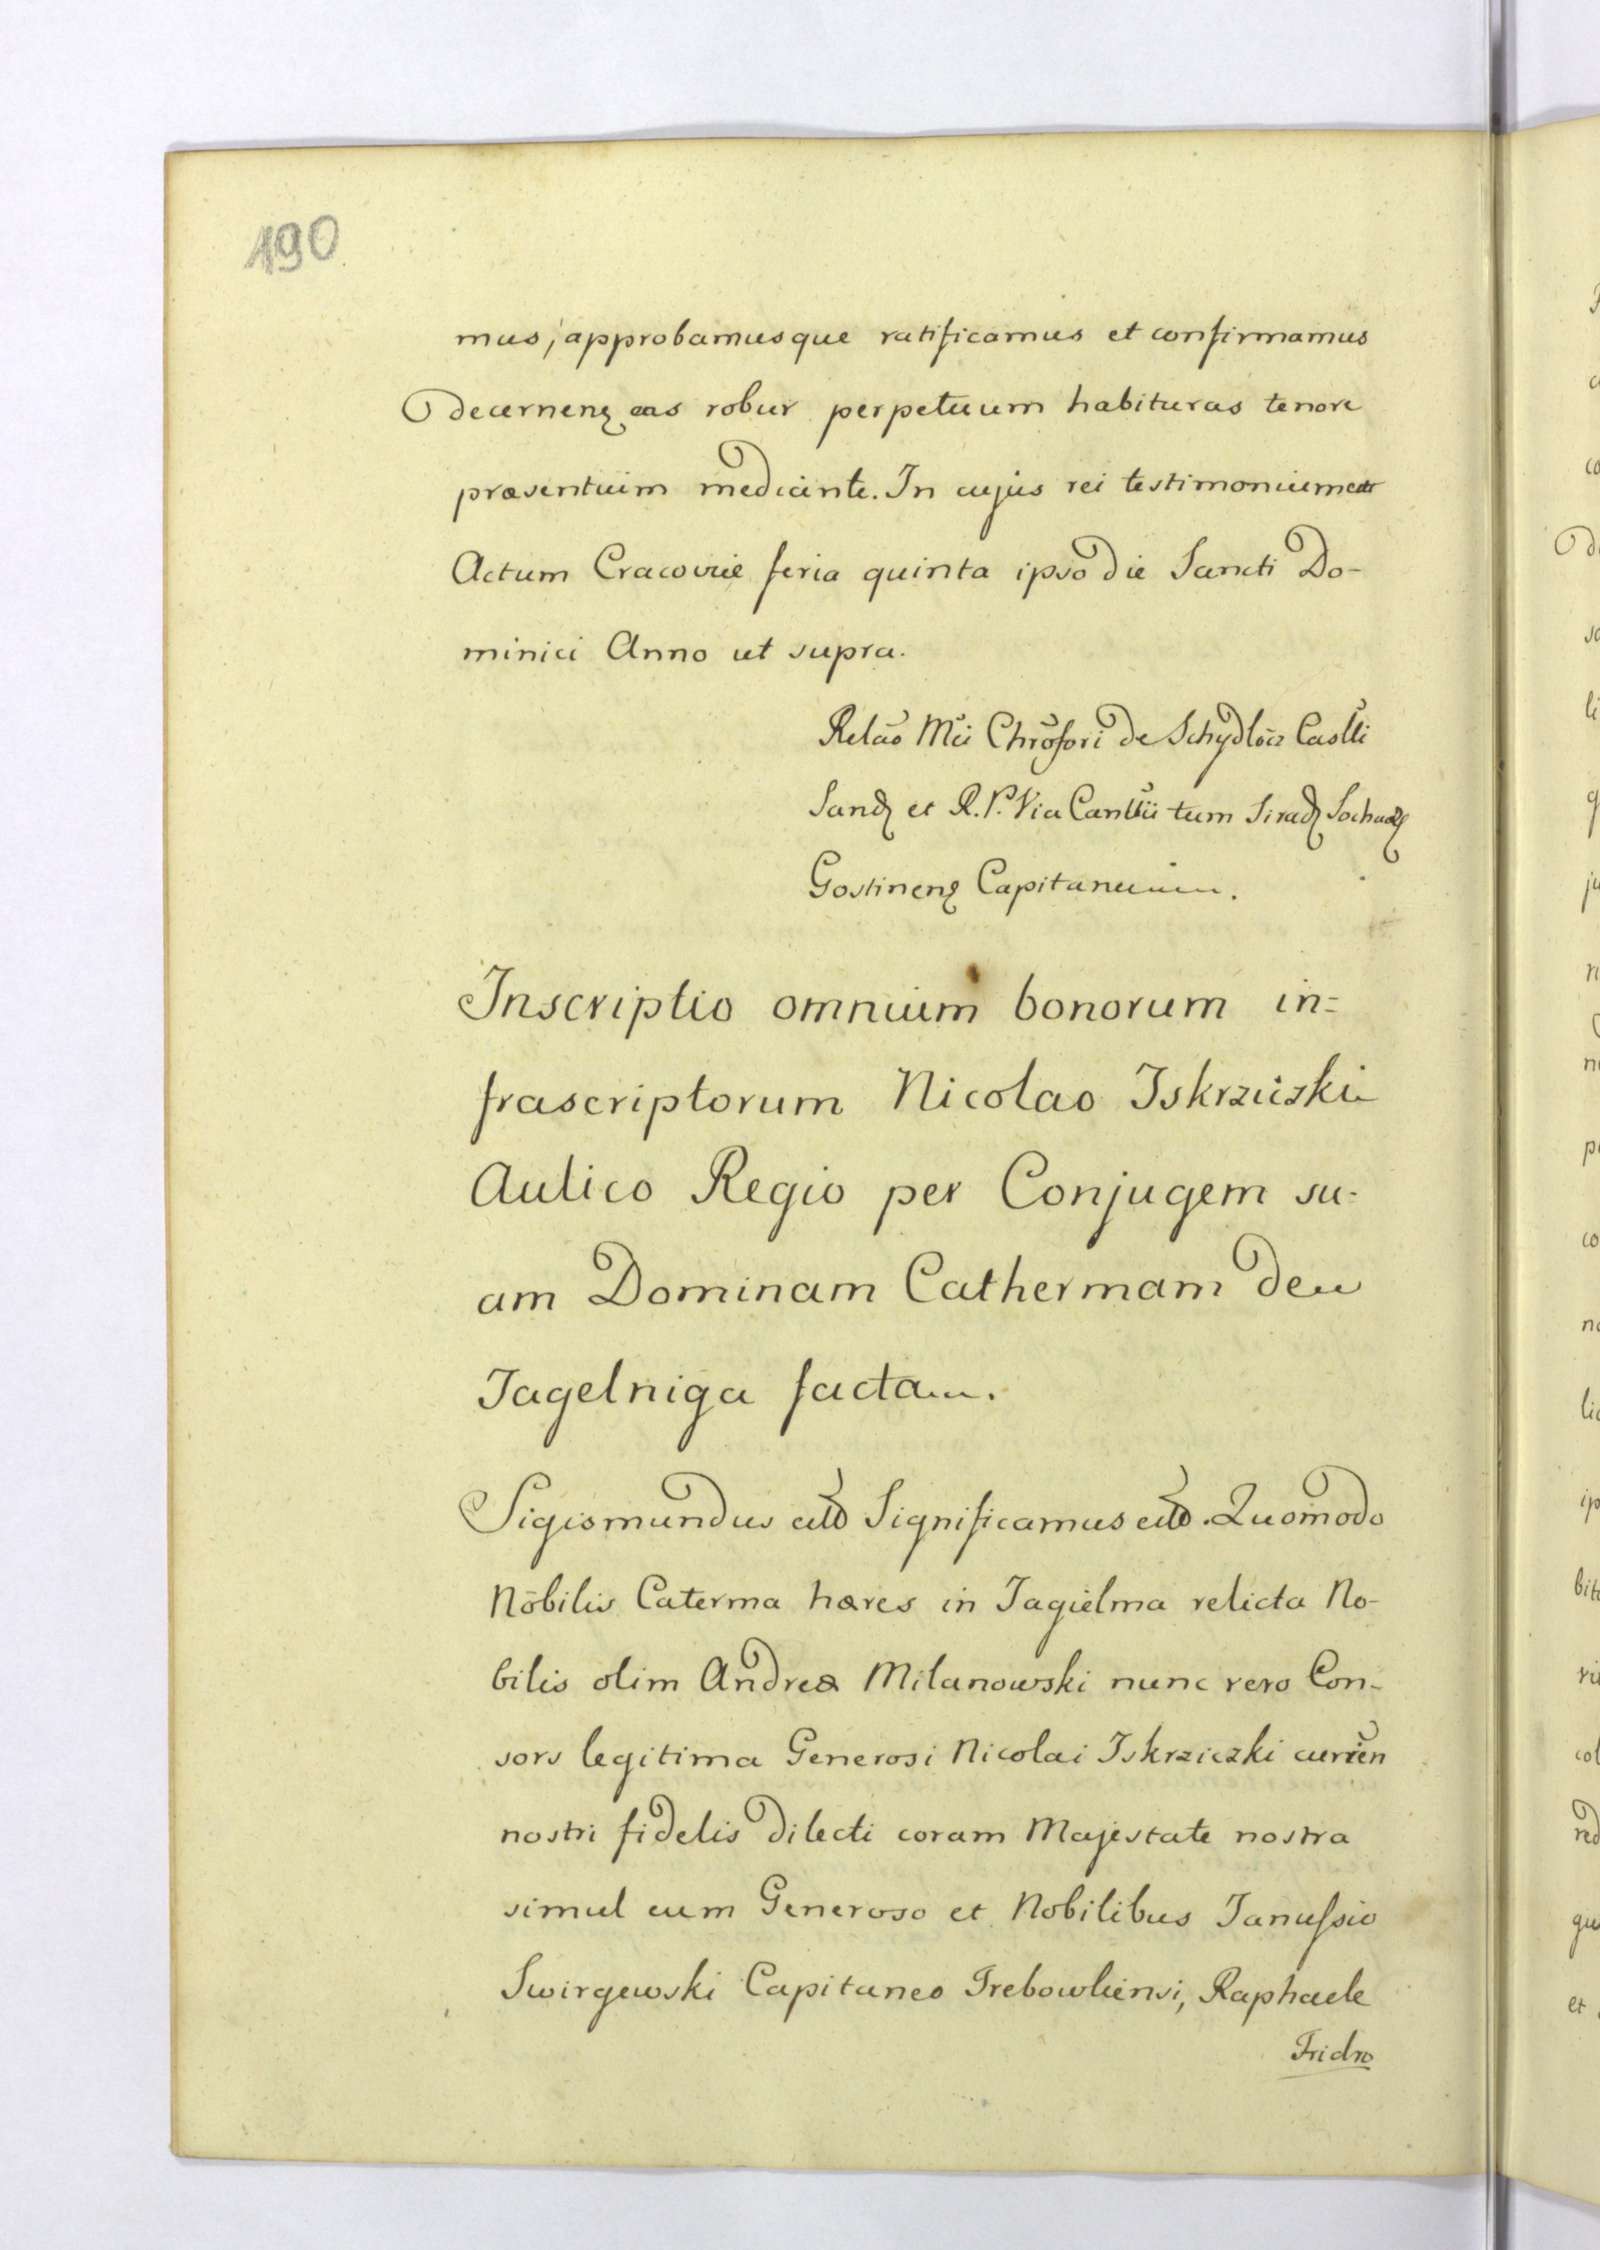 190
mus, approbamusque ratificamus et confirmamus
decernenꝫ eas robur perpetuum habituras tenore
præsentium mediante. In cujus rei testimonium etr
Actum Cracoviæ feria quinta ipso die Sancti Do-
minici Anno ut supra.
Relão Mci Chrõfori de Schydlöcz Castlli
Sandꝫ et R. P. Vice Cantlii tum Siradꝫ Sochacꝫ
Gostinenꝫ Capitaneum.
Inscriptio omnium bonorum in=
frascriptorum Nicolao Iskrziczki
Aulico Regio per Conjugem su-
am Dominam Cathermam de
Jagelniga factam.
Sigismundus etc Significamus etc. Quomodo
Nobilis Caterma hæres in Jagielma relicta No-
bilis olim Andreæ Milanowski nunc vero Con-
sors legitima Generosi Nicolai Iskrziczki curien
nostri fidelis dilecti coram Majestate nostra
simul cum Generoso et Nobilibus Janussio
Swirgewski Capitaneo Trebowliensi, Raphaele
Fridro